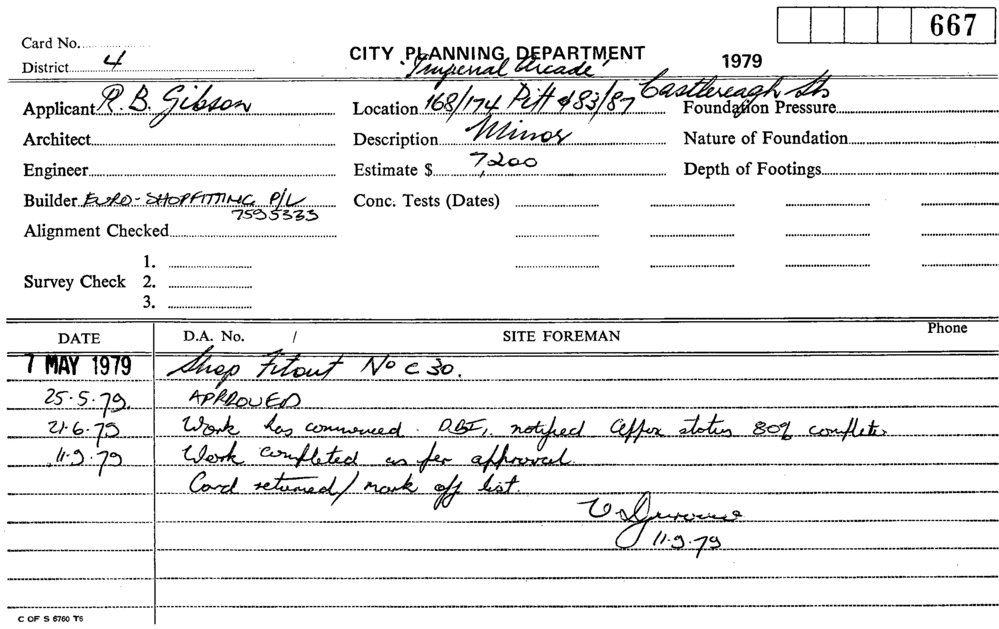 667
Card No.
CITY PLANNING DEPARTMENT 1979
District 4
'Imperial Arcade'
Applicant R. B. Gibson Location 168/174 Pitt & 83/87 Castlereagh Sts Foundation Pressure
Architect Description Minor Nature of Foundation
Engineer Estimate $ 7,200 Depth of Footings
Builder EURO-SHOPFITTING P/L Conc. Tests (Dates)
7595333
Alignment Checked
1.
Survey Check 2.
3.
DATE D.A. No. / SITE FOREMAN Phone
7 MAY 1979 Shop Fitout No C 30.
25.5.79. APPROVED
21.6.79 Work has commenced. D.B.I. notified status 80% complete
11.9.79 Work completed as per approval.
Card returned/mark off list.
11.9.79
C OF S 6760 T6